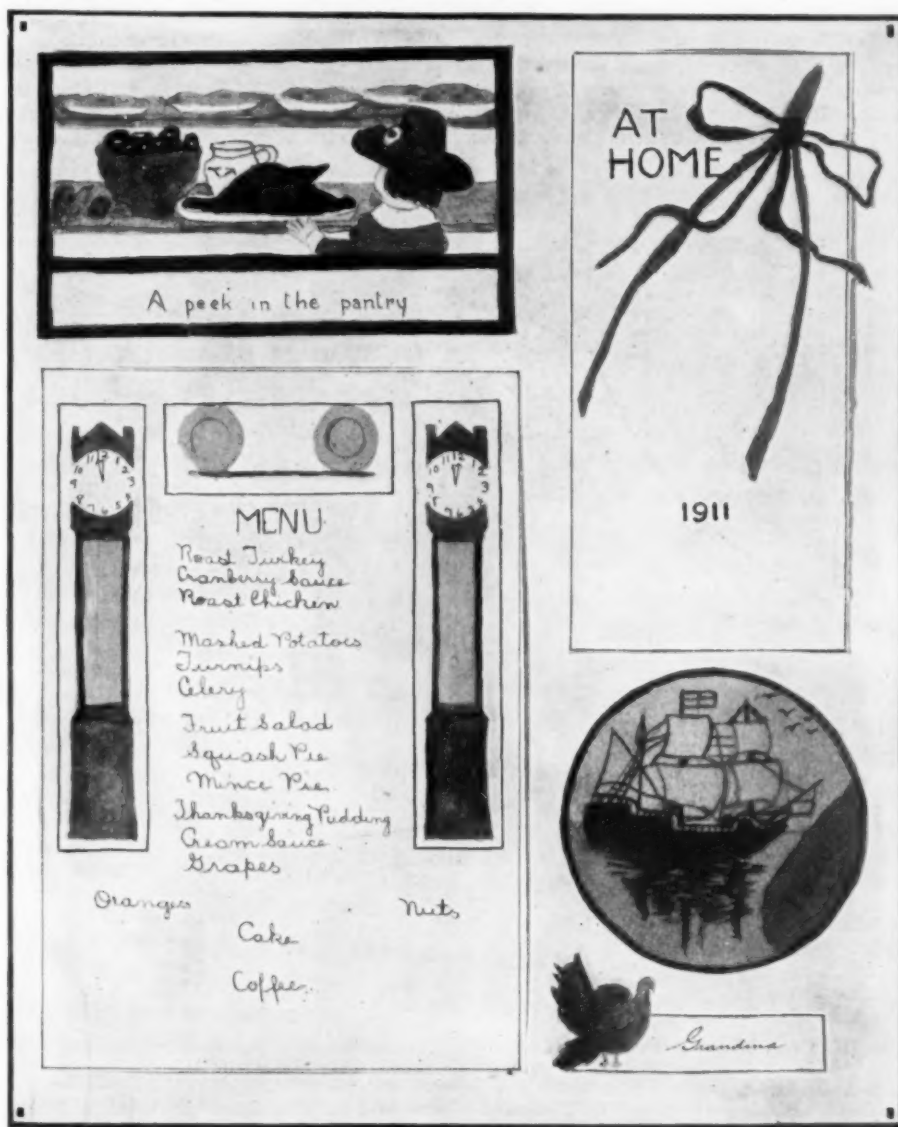 A peek in the pantry
AT
HOME
1911
MENU
Roast Turkey
Cranberry Sauce
Roast Chicken
Mashed Potatoes
Turnips
Celery
Fruit Salad
Squash Pie
Mince Pie
Thanksgiving Pudding
Cream Sauce
Grapes
Oranges Nuts
Cake
Coffee
Grandma